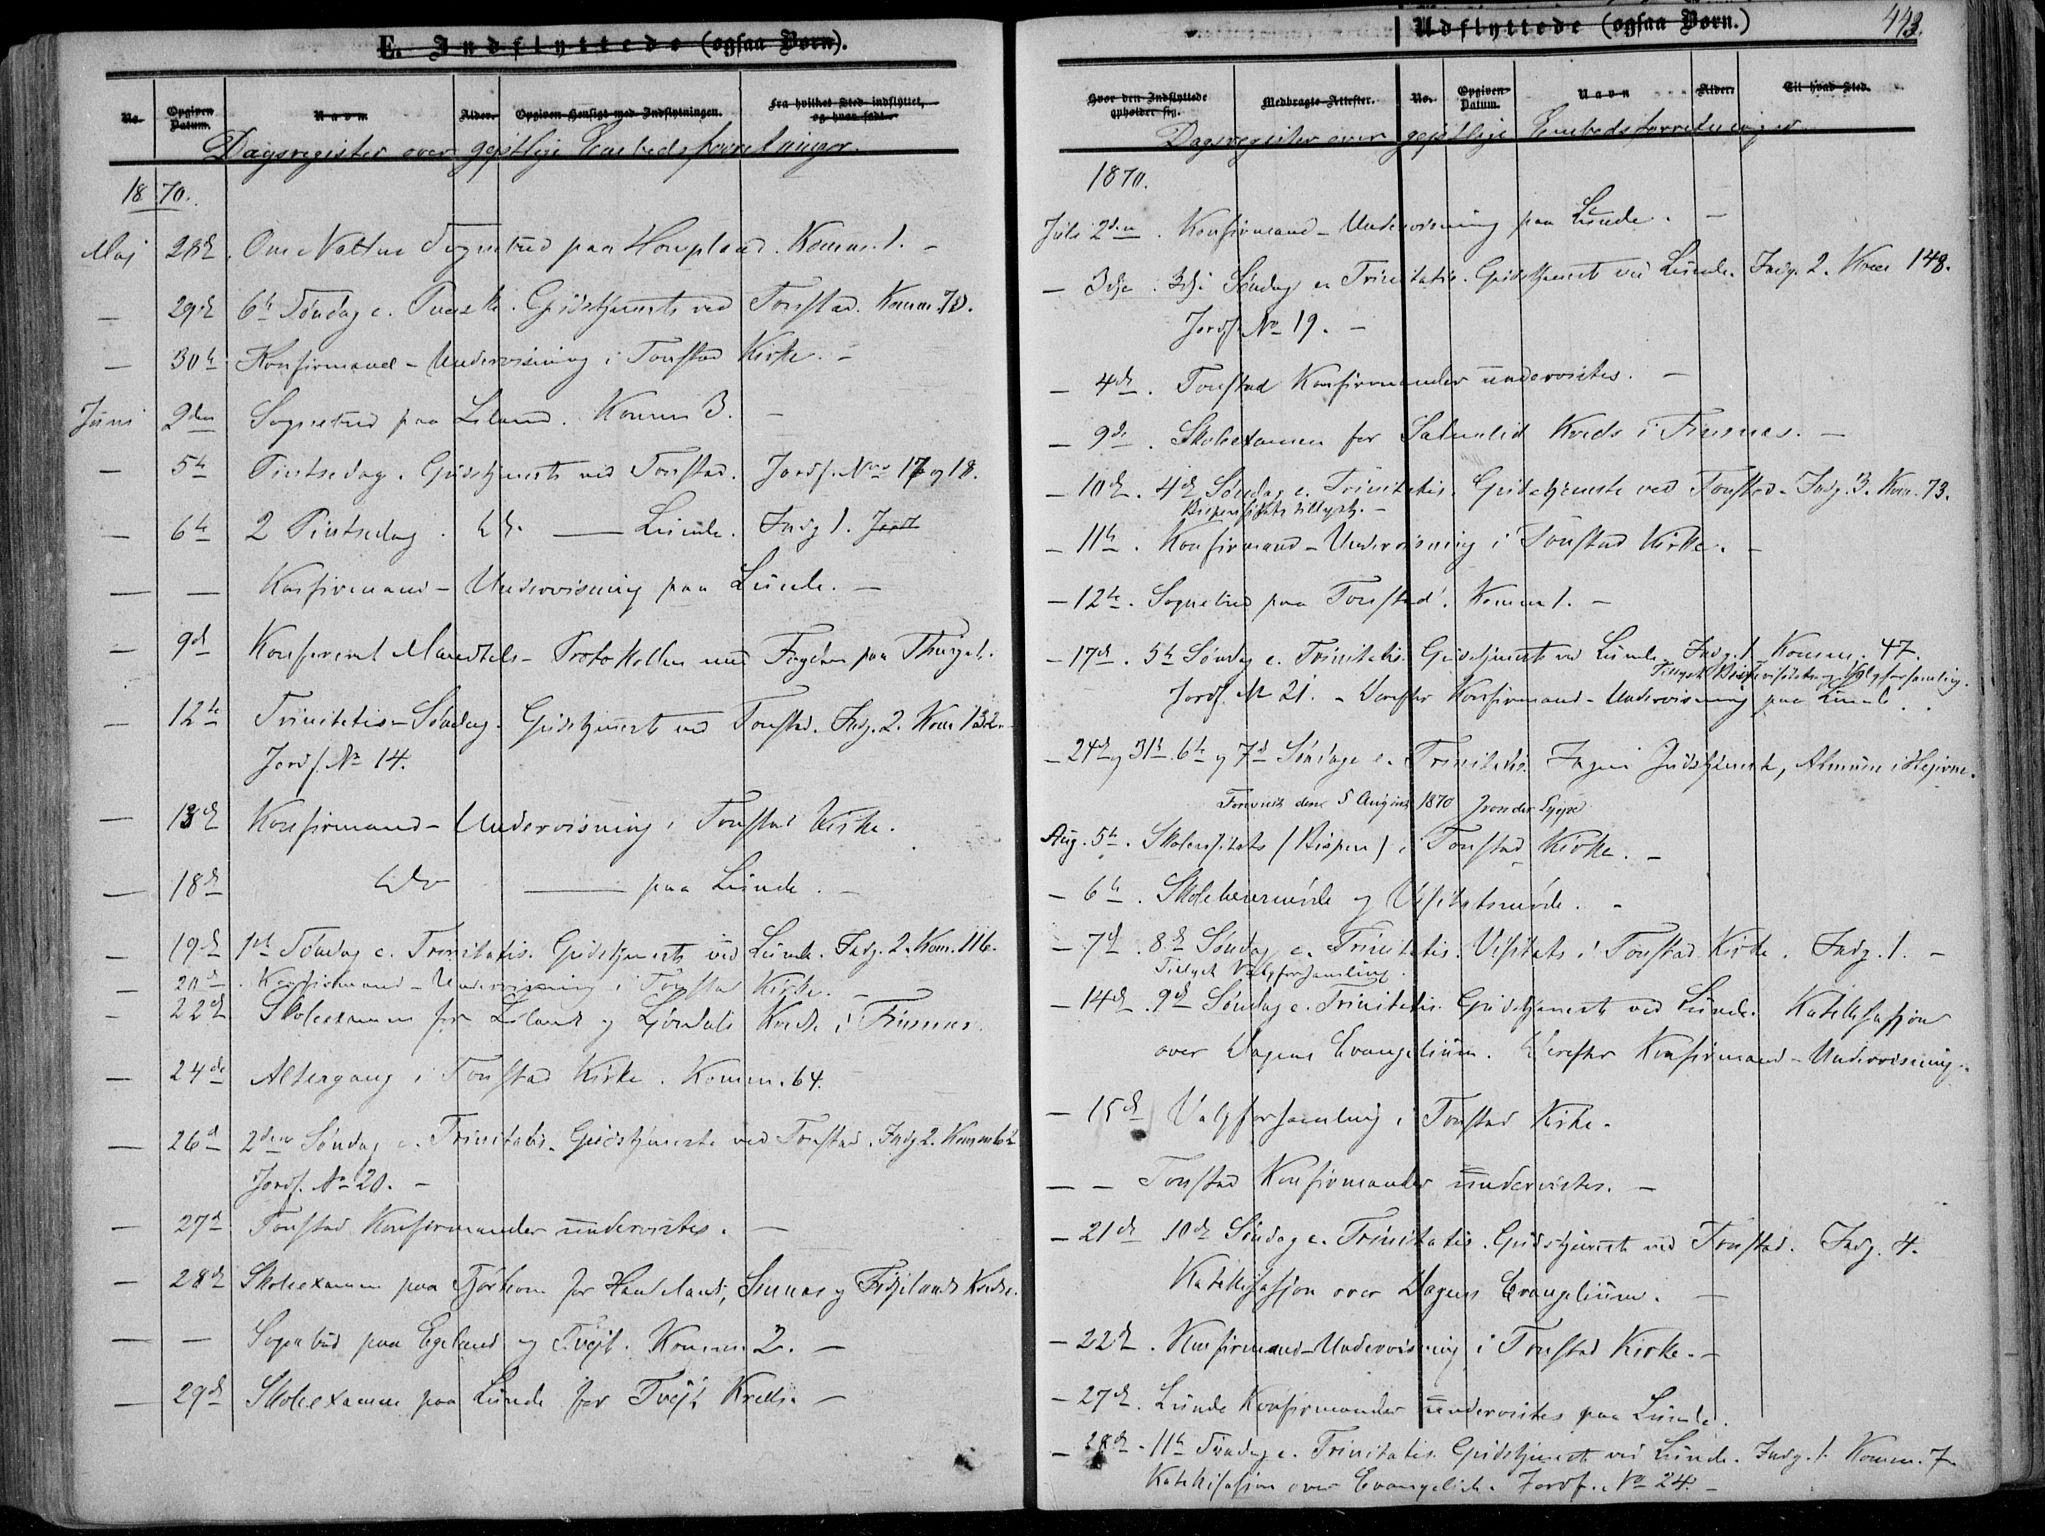 E. Indflyttede (ogsaa Børn).
No. Opgiven Datum. Navn Alder. Opgiven Hensigt med Indflytningen. Fra hvilket Sted indflyttet, og hvor født.
Dagsregister over gejstlige Embedsforretninger.
1870.
Maj 28d. Om Natten Sognebud paa Hompland. Komm. 1. –
– 29d 6te Søndag e. Paaske. Gudstjeneste ved Tonstad. Komm. 70.
– 30te Konfirmand-Undervisning i Tonstad Kirke. –
Juni 2den Sognebud paa Liland. Komm 3. –
– 5te Pintsedag. Gudstjeneste ved Tonstad. Jordf. Nro 17 og 18.
– 6te 2 Pintsedag. do. — Lunde. Indg 1.
— — Konfirmand-Undervisning paa Lunde. –
– 9de Konfereret Mandtals-Protokollen med Fogden paa
– 12te Trinitatis-Søndag. Gudstjeneste ved Tonstad. Indg. 2. Kom 132.
Jordf. No 14.
– 13de Konfirmand-Undervisning i Tonstad Kirke.
– 18de do — paa Lunde. –
– 19de 1ste Søndag e. Trinitatis. Gudstjeneste ved Lunde. Indg. 2. Kom. 116.
– 20de. Konfirmand-Undervisning i Tonstad Kirke. –
– 22de Skoleexamen for Liland og Kreds i Finsnes.
– 24de Altergang i Tonstad Kirke. Komm. 64.
– 26d 2den Søndag e. Trinitatis. Gudstjeneste ved Tonstad. Indg 2. Komm
Jordf. No 20. –
– 27d Tonstad Konfirmander undervistes. –
– 28de Skoleexamen paa Tjørhom for Haudeland, Sinnes og Fidjelands Kredse.
— — Sognebud paa Egeland og Tvejt. Komm. 2. –
– 29de Skoleexamen paa Lunde for Tvejt Kreds. –
Udflyttede (ogsaa Børn.) 443.
Hvor den Indflyttede opholder sig. Medbragte Attester. No. Opgiven Datum. Navn Alder. Til hvad Sted.
Dagsregister over gejstlige Embedsforretninger
1870.
Juli 2den. Konfirmand-Undervisning paa Lunde. –
– 3dje. 3dje Søndag e. Trinitatis. Gudstjeneste ved Lunde. Indg. 2. Kom 148.
Jordf. No 19. –
– 4de. Tonstad Konfirmander undervistes. –
– 9de. Skoleexamen for Kreds i Finsnes. –
– 10de. 4de Søndag e. Trinitatis. Gudstjeneste ved Tonstad. Indg. 3. Kom. 73.
Bispevisitats tillyst. –
– 11te. Konfirmand-Undervisning i Tonstad Kirke. –
– 12te. Sognebud paa Tonstad. Komm 1. –
– 17de. 5te Søndag e. Trinitatis. Gudstjeneste ved Lunde. Indg. 1. Komm. 47.
Tillyst Bispevisitats og Valgforsamling.
Jordf. No 21. – Derefter Konfirmand-Undervisning paa Lunde.
– 24de og 31te 6te og 7de Søndage e. Trinitatis. Ingen Gudstjeneste, Almuen i Hejerne.
den 5 August 1870
Aug. 5te. Skolevisitats (Bispen) i Tonstad Kirke. –
– 6te. og Visitatsmøde. –
– 7d. 8de Søndag e. Trinitatis. Visitats i Tonstad Kirke. Indg. 1. –
Tillyst Valgforsamling.
– 14de. 9de Søndag e. Trinitatis. Gudstjeneste ved Lunde. Katekisasjon
over Dagens Evangelium. Derefter Konfirmand-Undervisning.
– 15de Valgforsamling i Tonstad Kirke.
– – Tonstad Konfirmander undervistes. –
– 21de 10de Søndag e. Trinitatis. Gudstjeneste ved Tonstad. Indg. 4.
Katekisasjon over Dagens Evangelium. –
– 22de. Konfirmand-Undervisning i Tonstad Kirke. –
– 27de. Lunde Konfirmander undervistes paa Lunde.
– 28de. 11te Søndag e. Trinitatis. Gudstjeneste ved Lunde. Indg. 1. Komm. 7
Katekisasjon over Evangeliet. Jordf. No 24. –